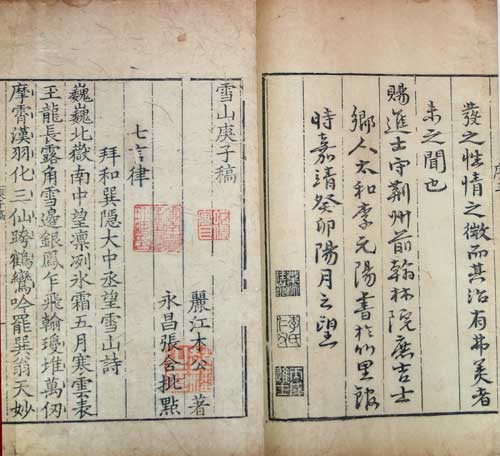 發之性情之微而其治有弗美者
未之聞也
賜進士守荊州前翰林院庶吉士
鄉人太和李元陽書於竹里館
時嘉靖癸卯陽月之望
李氏仁甫
雪山庚子稿
麗江木公著
永昌張含批點
七言律
拜和巽隱大中丞望雪山詩
巍巍北嶽南中望凛冽氷霜五月寒雲表
玉龍長露角雪邊銀鳳乍飛翰瓊堆萬仞
摩霄漢羽化三仙跨鶴鸞吟罷巽翁天妙